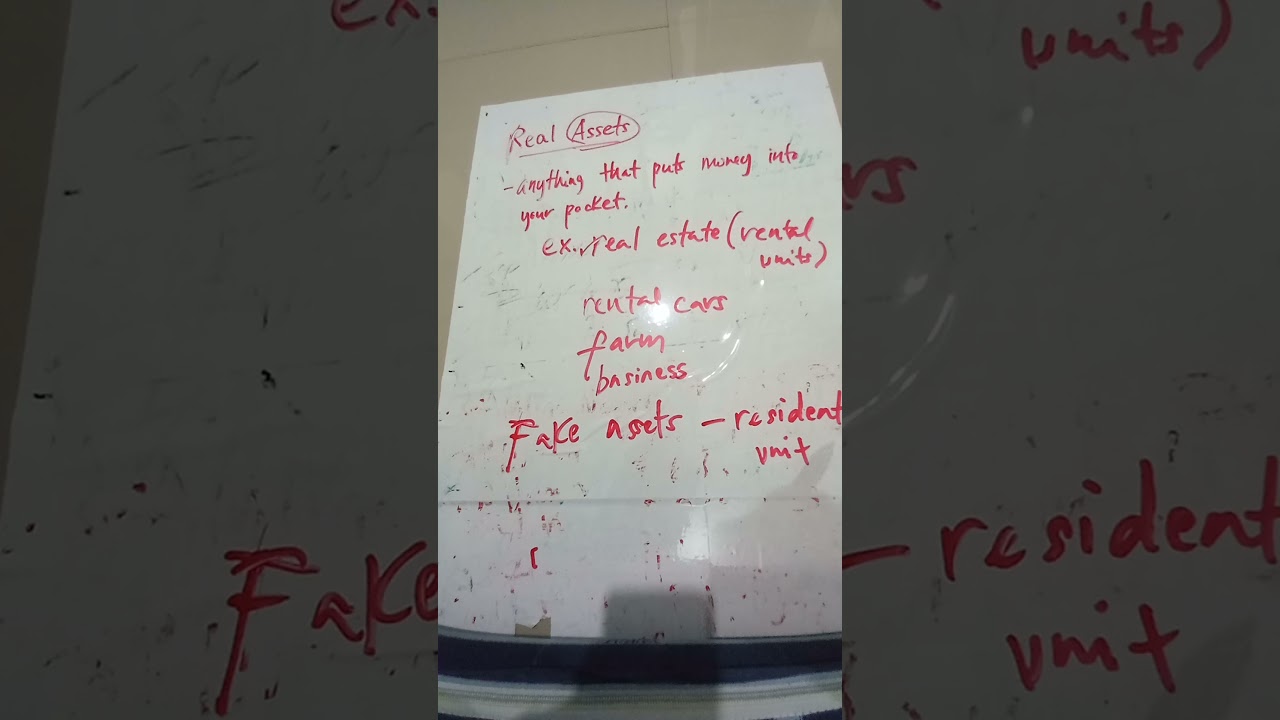 Real Assets
- anything that puts money into
your pocket.
ex. real estate (rental
units)
rental cars
farm
business
Fake assets - resident
unit